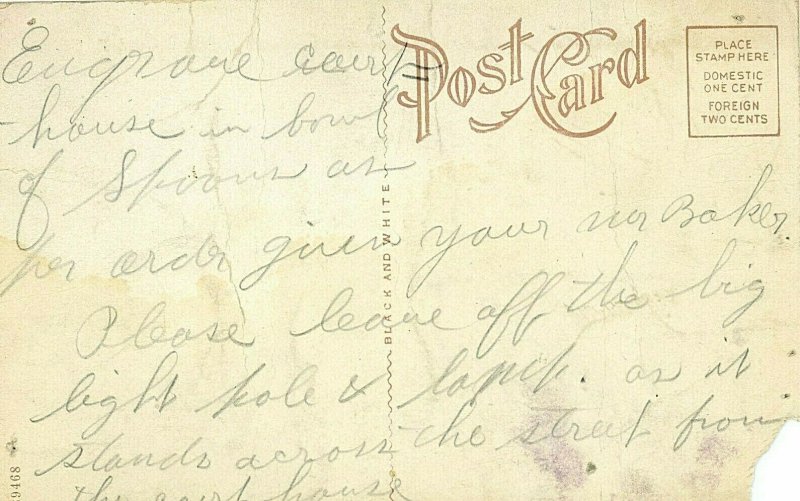 Post Card
PLACE
STAMP HERE
DOMESTIC
ONE CENT
FOREIGN
TWO CENTS
BLACK AND WHITE
Engrave court
house in bowl
of Spoons as
per order given your mr Baker
Please leave off the big
light pole & lamp. as it
stands across the street from
the court house
9468